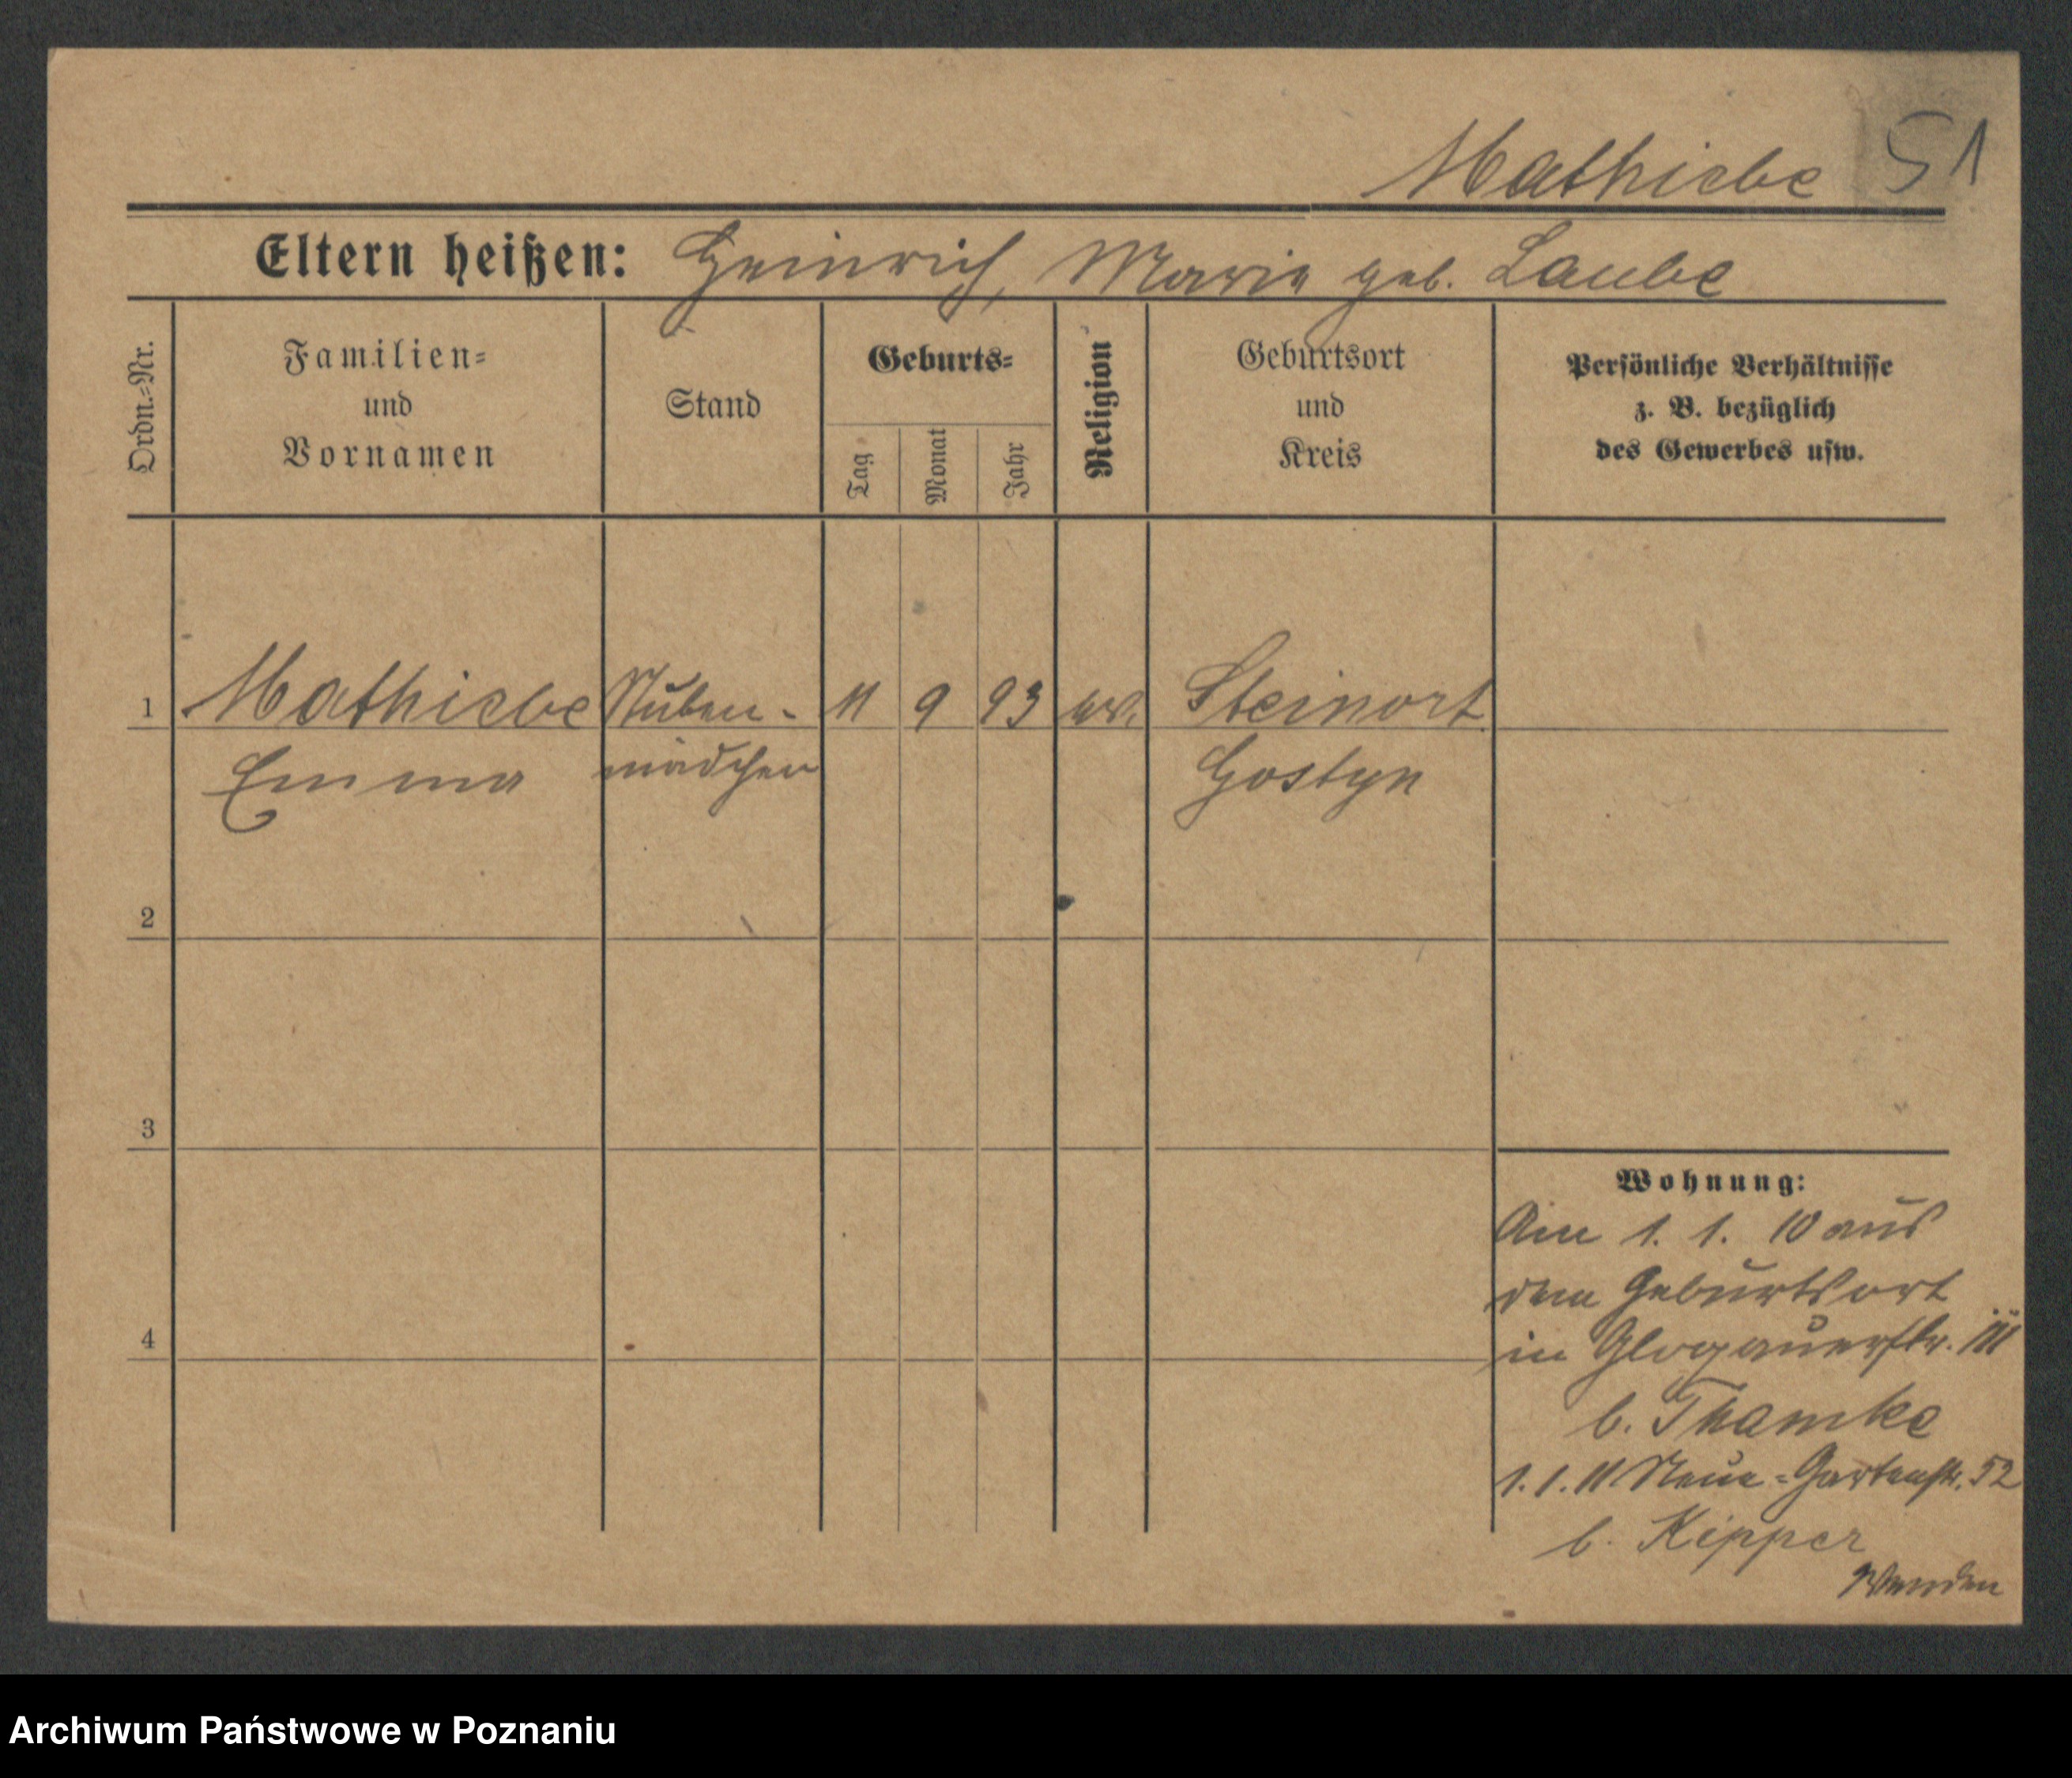 Mathiebe 51
Eltern heißen: Heinrich, Marie geb. Laube
Ordn.-Nr.
Familien-
und
Vornamen
Stand
Geburts-
Tag
Monat
Jahr
Religion
Geburtsort
und
Kreis
Persönliche Verhältnisse
z. B. bezüglich
des Gewerbes usw.
1 Mathiebe Stuben- 11 9 93 ev. Steinort
Emma mädchen Gostyn
2
3
4
Wohnung:
Am 1. 1. 10 aus
dem Geburtsort
in Glogauerstr.
b. Thamke
1. 1. 11 Neue-Gartenstr. 52
b. Kipper
Wenden
Archiwum Państwowe w Poznaniu